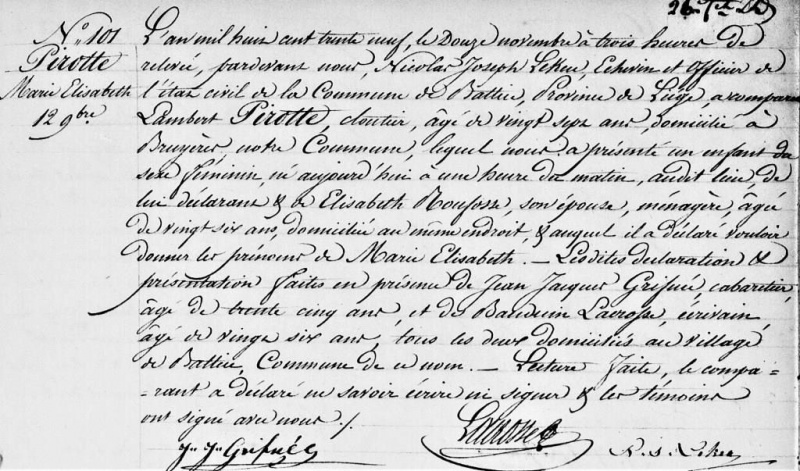 N.° 101
Pirotte
Marie Elisabeth
12 9bre
L'an mil huit cent trente neuf, le Douze novembre à trois heures de
relevée, pardevant nous, Nicolas Joseph Lekeu, Echevin et officier de
l'état civil de la Commune de Battice, Province de Liége, a comparu
Lambert Pirotte, cloutier, âgé de vingt sept ans, domicilié à
Bruyères notre Commune, lequel nous a présenté un enfant du
sexe féminin, né aujourd'hui à une heure du matin, audit lieu, de
lui déclarant & de Elisabeth Roufosse, son épouse, ménagère, âgée
de vingt six ans, domiciliée au même endroit, & auquel il a déclaré vouloir
donner les prénoms de Marie Elisabeth. — Lesdites déclaration &
présentation faites en présence de Jean Jacques Grifnée cabaretier,
âgé de trente cinq ans, et de Bauduin Lacrosse, écrivain,
âgé de vingt six ans, tous les deux domiciliés au village
de Battice, Commune de ce nom. — Lecture faite, le compa=
=rant a déclaré ne savoir écrire ni signer & les témoins
ont signé avec nous ./.
J. J. Grifnée Lacrosse N. J. Lekeu